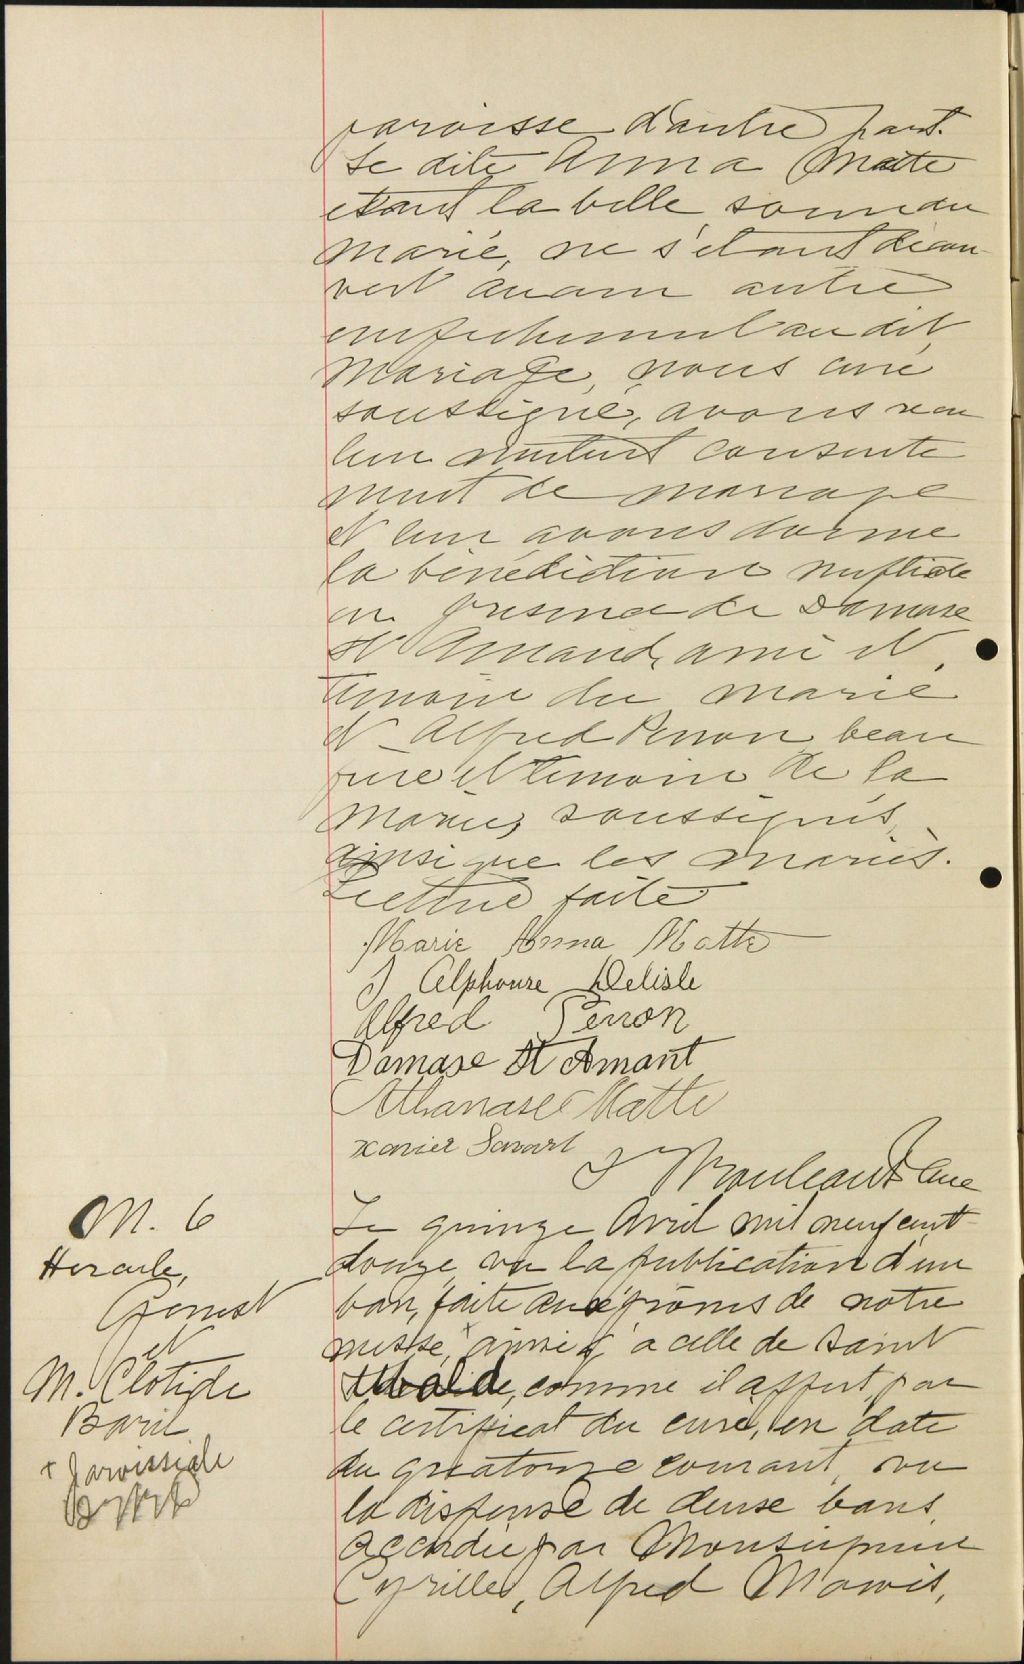 paroisse d'autre part.
La dite Anna Matte
étant la belle soeur du
marié, ne s'étant décou
vert aucun autre
empêchement au dit
mariage, nous curé
soussigné, avons reçu
leur mutuel consente
ment de mariage
et leur avons donné
la bénédiction nuptiale
en présence de Damase
St Amand, ami et
témoin du marié
et Alfred Perron beau
frère et témoin de la
mariée, soussignés,
ainsi que les mariés.
Lecture faite
Marie Anna Matte
J Alphonse Delisle
Alfred Perron
Damase St Amant
Athanase Matte
xavier Savard
Rouleau Curé
M. 6
Hercule,
Genest
et
M. Clotide
Baril
+ paroissiale
Le quinze Avril mil neuf cent
douze, vu la publication d'un
ban, faite au prônes de notre
messe + ainsi q' a celle de Saint
Ubalde, comme il appert par
le certificat du curé, en date
du quatorze courant, vu
la dispense de deux bans,
accordée par Monseigneur
Cyrille, Alfred Marois,